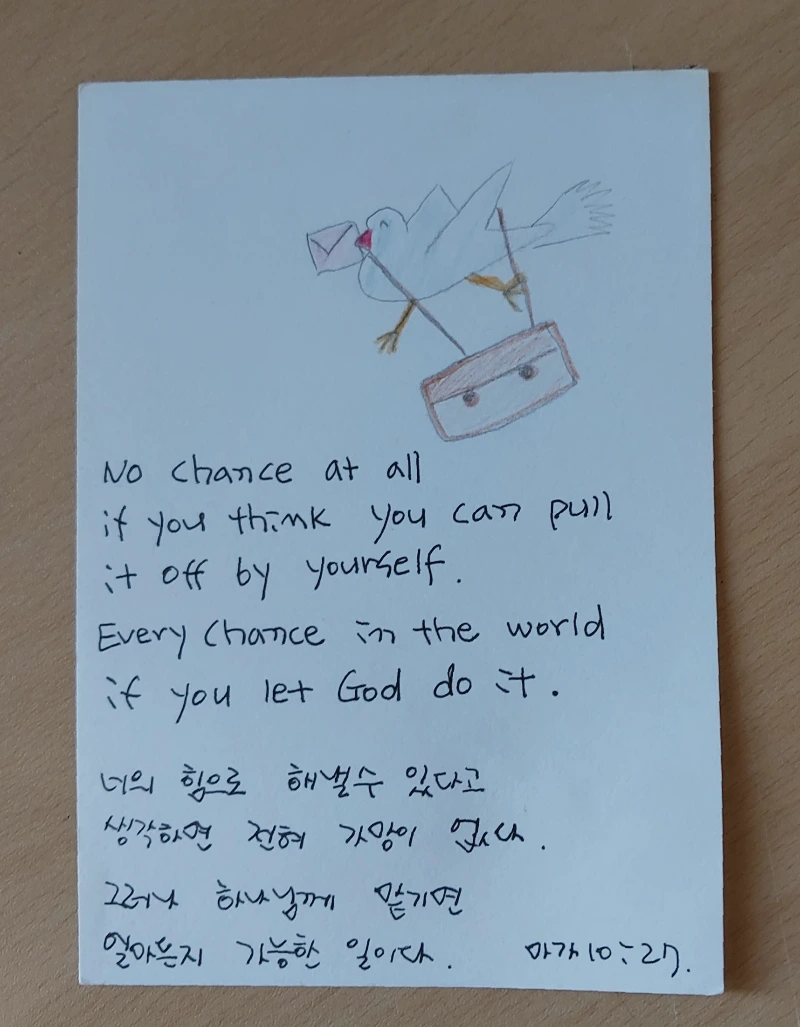 No chance at all
if you think you can pull
it off by yourself.
Every chance in the world
if you let God do it.
너의 힘으로 해낼수 있다고
생각하면 전혀 가망이 없다.
그러나 하나님께 맡기면
얼마든지 가능한 일이다. 마가10:27.